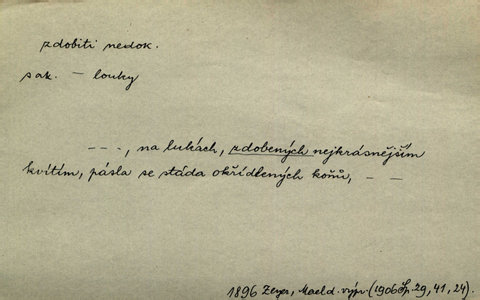 zdobiti nedok.
sak. – louky
- - -, na lukách, zdobených nejkrásnějším
kvítím, pásla se stáda okřídlených koňů, - -
1896 Zeyer, Maeld. výpr. (1906 Sp. 29, 41, 24).